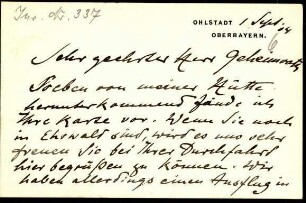 Inv. Nr. 337
OHLSTADT 1 Sept. 04
OBERBAYERN.
6
Sehr geehrter Herr Geheimrath
Soeben von meiner Hütte
herunterkommend finde ich
Ihre Karte vor. Wenn Sie noch
in Ehrwald sind, wird es uns sehr
freuen Sie bei Ihrer Durchfahrt
hier begrüßen zu können. Wir
haben allerdings einen Ausflug in